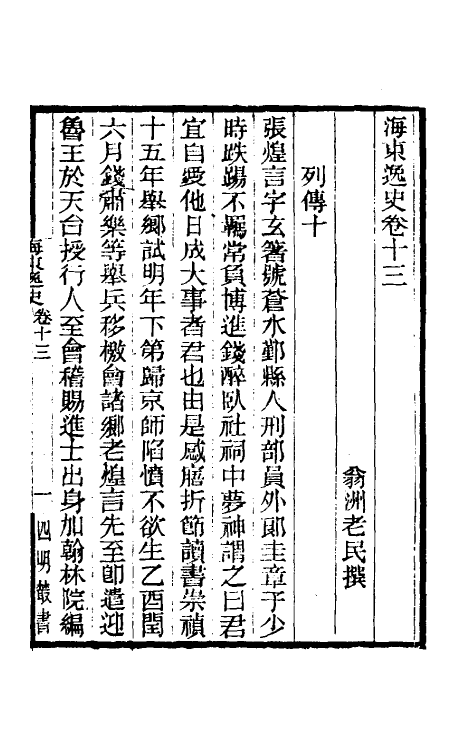 海東逸史卷十三
翁洲老民撰
列傳十
張煌言字玄箸號蒼水鄞縣人刑部員外郎圭章子少
時跌踢不羈常負博進錢醉臥社祠中夢神謂之曰君
宜自愛他日成大事者君也由是感寤折節讀書崇禎
十五年舉鄉試明年下第歸京師陷憤不欲生乙酉閏
六月錢肅樂等舉兵移檄會諸鄉老煌言先至卽遣迎
魯王於天台授行人至會稽賜進士出身加翰林院編
海東逸史卷十三
一
四明叢書